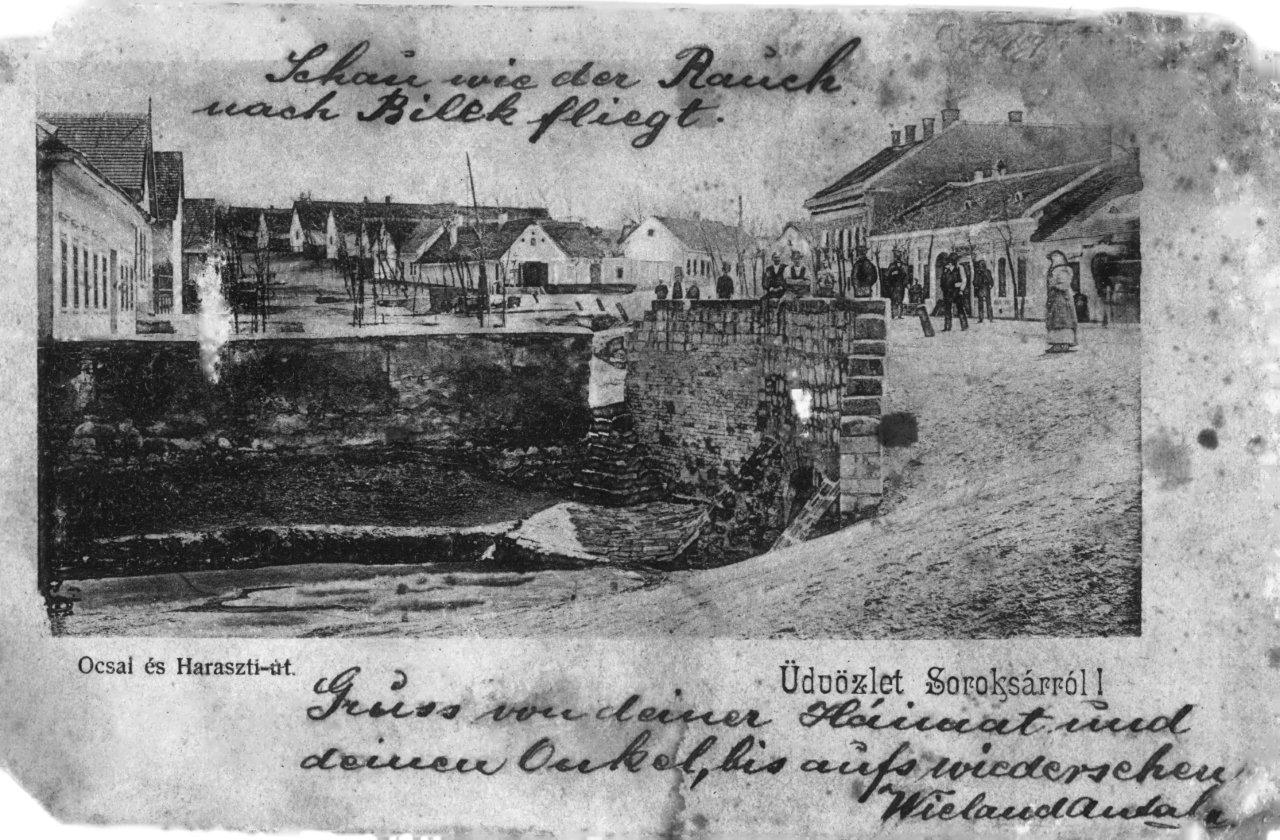 Schau wie der Rauch
nach Bilek fliegt.
Ocsai és Haraszti-út.
Üdvözlet Soroksárról!
Gruss von deiner Háimat und
deinen Onkel, bis aufs wiedersehen
Wieland Antal